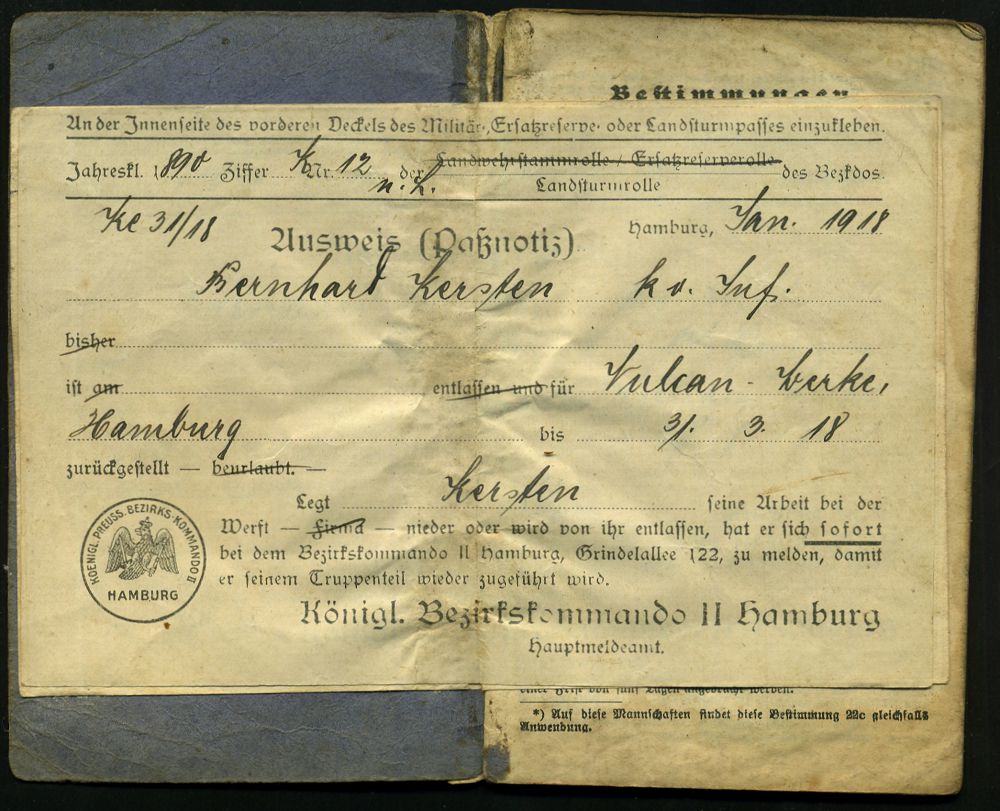 Bestimmungen
An der Innenseite des vorderen Deckels des Militär-, Ersatzreserve- oder Landsturmpasses einzukleben.
Jahreskl. 1890 Ziffer K Nr. 12 der Landwehrstammrolle / Ersatzreserverolle des Bezkdos.
n. L. Landsturmrolle
Ke 31/18 Hamburg, Jan. 1918
Ausweis (Paßnotiz)
Bernhard Kersten k v. Inf.
bisher
ist am entlassen und für Vulcan-Werke,
Hamburg bis 31. 3. 18
zurückgestellt — beurlaubt. —
Legt Kersten seine Arbeit bei der
Werft — Firma — nieder oder wird von ihr entlassen, hat er sich sofort
bei dem Bezirkskommando II Hamburg, Grindelallee 122, zu melden, damit
er seinem Truppenteil wieder zugeführt wird.
KOENIGL. PREUSS. BEZIRKS-KOMMANDO II
HAMBURG
Königl. Bezirkskommando II Hamburg
Hauptmeldeamt.
einer Frist von fünf Tagen angebracht werden.
*) Auf diese Mannschaften findet diese Bestimmung 22c gleichfalls
Anwendung.